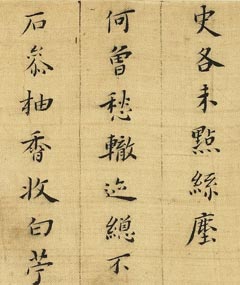 史各未點絲塵
何曽愁轍迹總不
石衆柚香收白苧